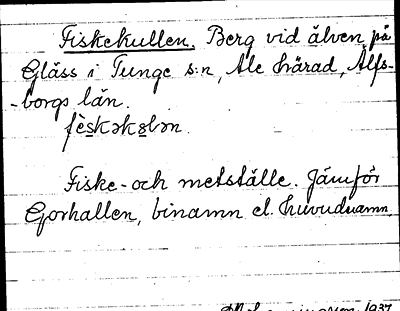 Fiskekullen. Berg vid älven på
Gläss i Tunge s:n, Ale härad, Älfs-
-borgs län.
fèskəkɷlən.
Fiske- och metställe. Jämför
Gorhallen, binamn el. huvudnamn
1937